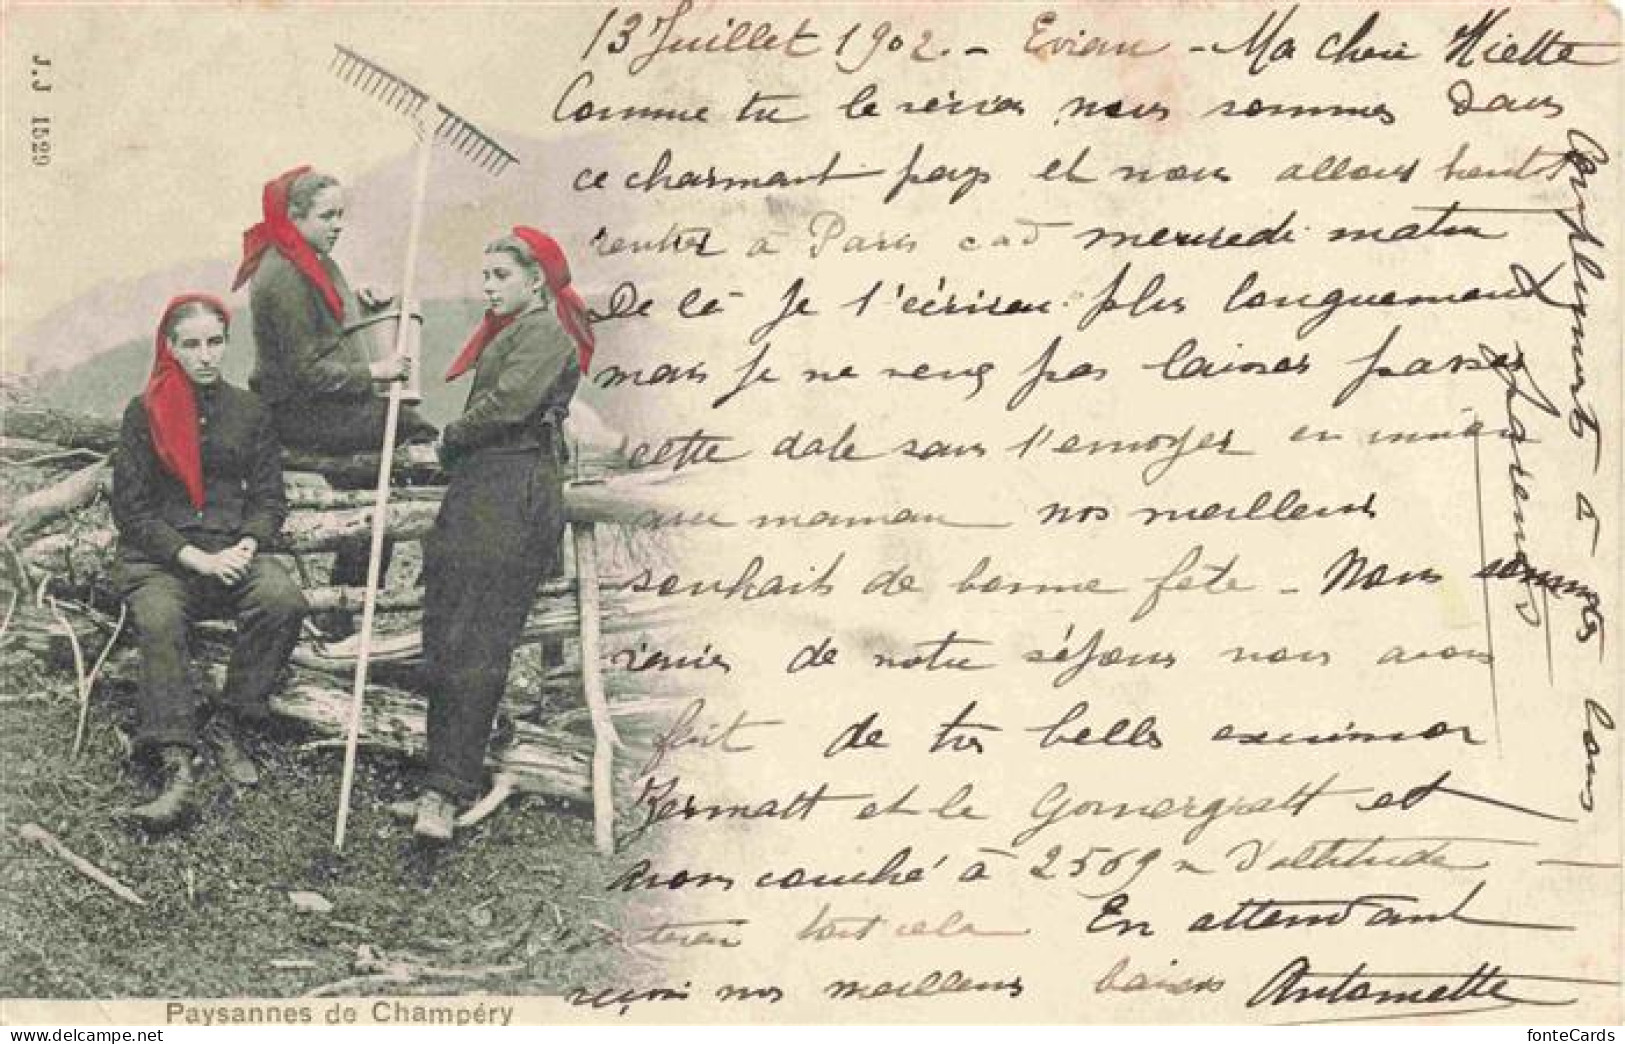 J.J 1529
13 Juillet 1902. - Evian - Ma chère Miette
Comme tu le verras nous sommes dans
ce charmant pays et nous allons bientôt
rentrer à Paris càd mercredi matin
De là je t'écrirai plus longuement
mais je ne veux pas laisser passer
cette date sans t'envoyer
avec maman nos meilleurs
souhaits de bonne fête - Nous sommes
ravies de notre séjour nous avons
fait de très belles excursions
Zermatt et le Gornergratt et
avons couché à 2569 m d'altitude -
tout cela En attendant
reçois nos meilleurs baisers Antoinette
Compliments à tous
Paysannes de Champéry
fonteCards
https://www.delcampe.net